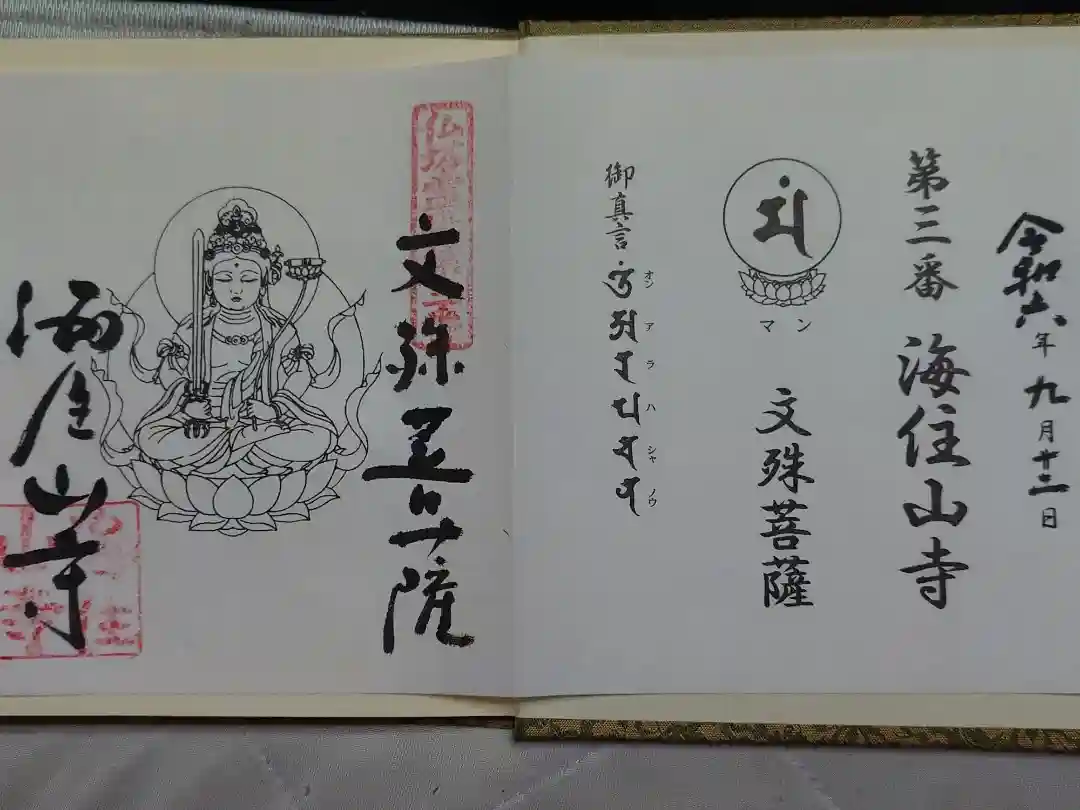 令和六年 九月十二日
第三番 海住山寺
𑖦𑖽
マン
文殊菩薩
御真言 𑖌𑖼 𑖀 𑖨 𑖢 𑖓 𑖡
オン ア ラ ハ シャ ノウ
仏塔
文殊菩薩
海住山寺